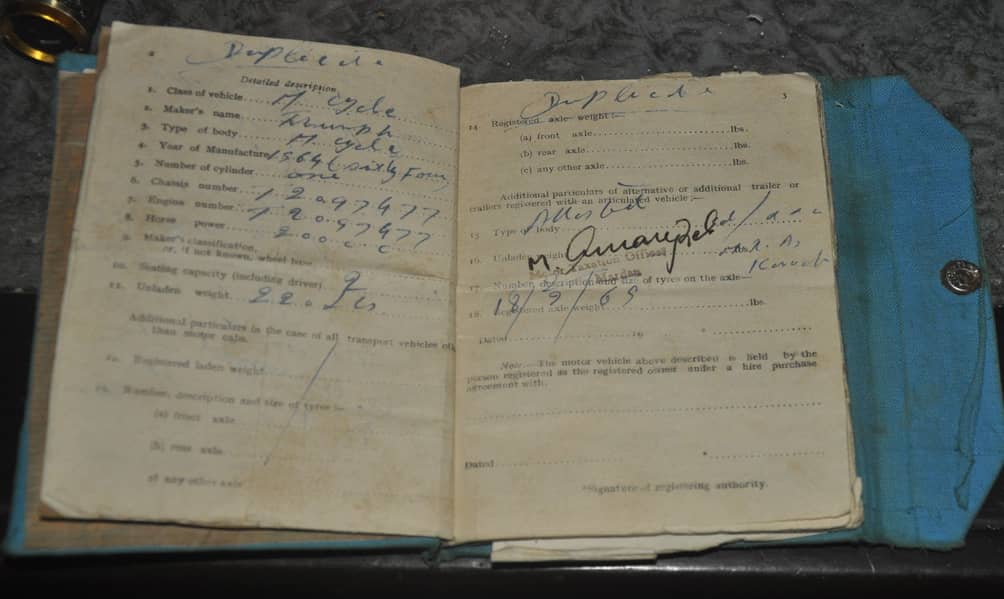 2
Duplicate
Detailed description
1. Class of vehicle.... M. cycle
2. Maker's name.... Triumph
3. Type of body.... M. cycle
4. Year of Manufacture 1964 (sixty Four)
5. Number of cylinder one
6. Chassis number.. 12097477
7. Engine number.. 12097477
8. Horse power.... 200 c c
9. Maker's classification,
or, if not known, wheel base
10. Seating capacity (including driver) 2
11. Unladen weight. 220
Additional particulars in the case of all transport vehicles other
than motor cabs.
12. Registered laden weight
13. Number, description and size of tyres :—
(a) front axle
(b) rear axle
any other axle
Duplicate
3
14 Registered axle weight :—
(a) front axle........lbs.
(b) rear axle........lbs.
(c) any other axle........lbs.
Additional particulars of alternative or additional trailer or
trailers registered with an articulated vehicle ;—
15 Type of body
16. Unladen weight
M.
Motor Taxation Officer
Mardan
17. Number, description and size of tyres on the axle—
18/2/69
18. Registered axle weight........lbs.
Dated........19 *........
Note.—The motor vehicle above described is held by the
person registered as the registered owner under a hire purchase
agreement with.
Dated........ *........
*Signature of registering authority.